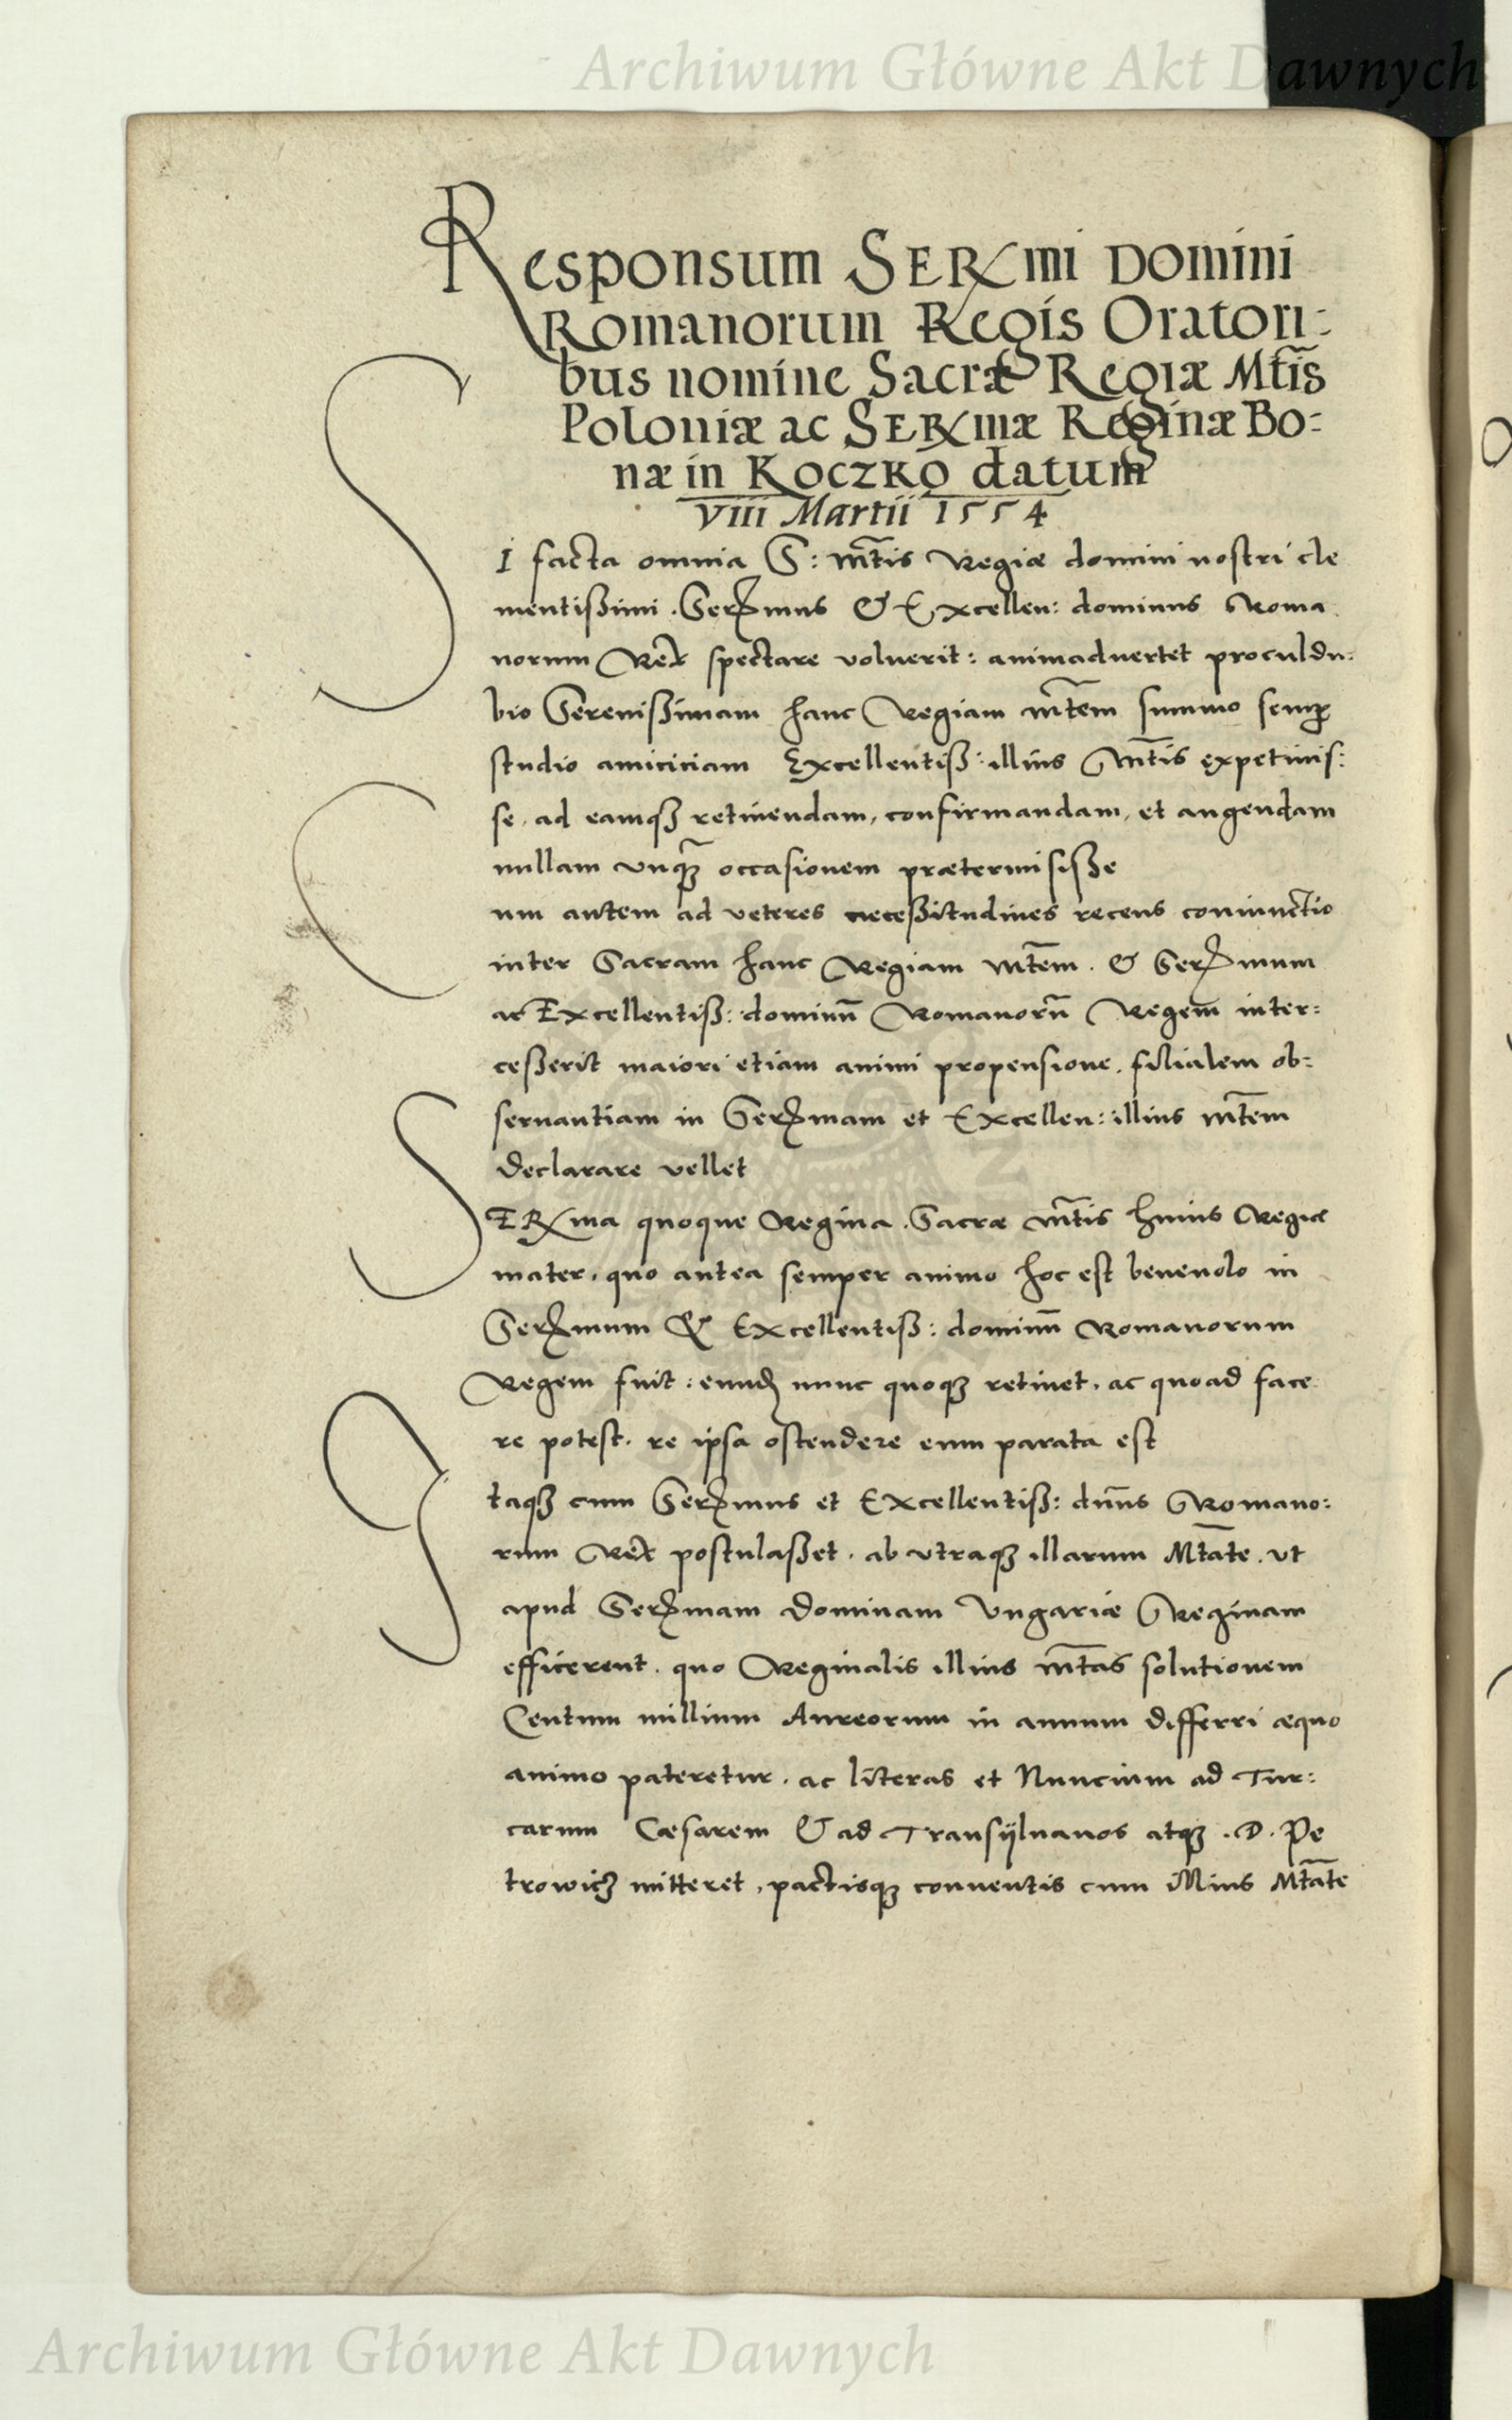 Archiwum Główne Akt Dawnych
Responsum SERmi Domini
Romanorum Regis Oratori-
bus nomine Sacræ Regiæ Mt̃is
Poloniæ ac SERmæ Reginæ Bo-
næ in Koczko datum
VIII Martii 1554
SI facta omnia S: mt̃is Regiæ domini nostri cle
mentißimi. Sermus & Excellen: dominus Roma
norum Rex spectare voluerit: animaduertet proculdu-
bio Serenißimam hanc Regiam mt̃em summo semꝑ
studio amiciciam Excellentiß: illius Mt̃is expetiuis:
se, ad eamqȝ retinendam, confirmandam, et augendam
nullam vnqȝ̃ occasionem prætermisiße
Cum autem ad veteres neceßitudines recens coniunctio
inter Sacram hanc Regiam mt̃em. & Sermum
ac Excellentiß: dominũ Romanorũ Regem inter:
ceßerit maiori etiam animi propensione, filialem ob:
seruantiam in Sermam et Excellen: illius mt̃em
declarare vellet
SERma quoque Regina. Sacræ mt̃is huius Regiæ
mater, quo antea semper animo hoc est beneuolo in
Sermum & Excellentiß: dominũ Romanorum
Regem fuit: eundꝫ nunc quoqȝ retinet, ac quoad face
re potest. re ipsa ostendere eum parata est
Itaqȝ cum Sermus et Excellentiß: dñus Romano:
rum Rex postulaßet. ab vtraqȝ illarum Mt̃ate. vt
apud Sermam Dominam Vngariæ Reginam
efficerent. quo Reginalis illius mt̃as solutionem
Centum millium Aureorum in annum differri æquo
animo pateretur. ac literas et Nuncium ad Tur:
carum Cæsarem & ad Transÿluanos atqȝ .D. Pe
trowicȝ mitteret, pactisqȝ conuentis cum illius Mt̃ate
Archiwum Główne Akt Dawnych